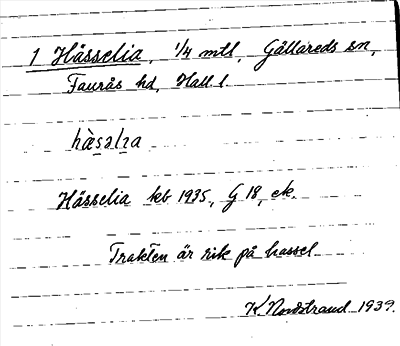 1 Hässelia, 1/4 mtl, Gällareds sn,
Faurås hd, Hall. l.
hä̀səlıa
Hässelia kb 1935, G 18, ek.
Trakten är rik på hassel.
K. Nordstrand 1939.